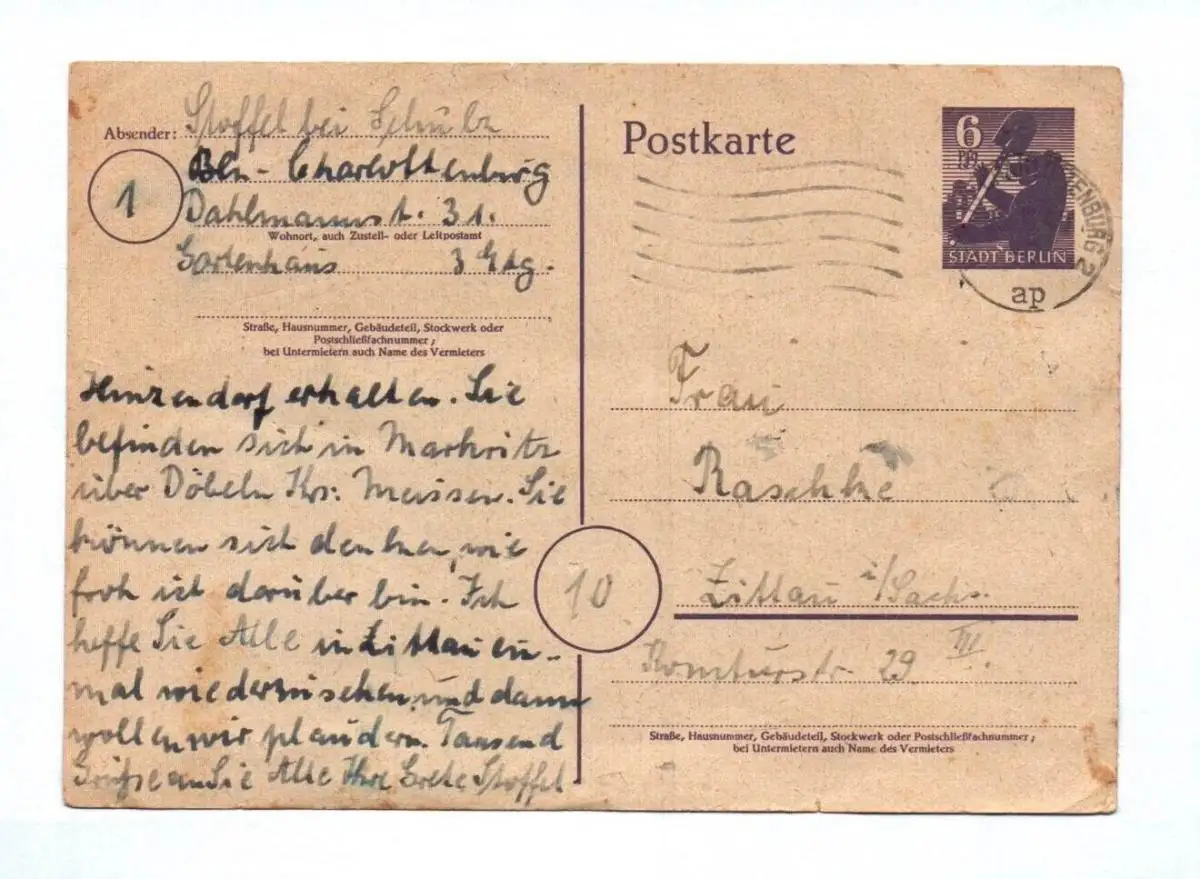 Absender: Stoffel bei Schulz
1
Bln - Charlottenburg
Dahlmannst. 31.
Wohnort, auch Zustell- oder Leitpostamt
Gartenhaus 3 Etg.
Straße, Hausnummer, Gebäudeteil, Stockwerk oder
Postschließfachnummer;
bei Untermietern auch Name des Vermieters
Hinzendorf erhalten. Sie
befinden sich in Markritz
über Döbeln Krs: Meissen. Sie
können sich denken, wie
froh ich darüber bin. Ich
hoffe Sie Alle in Zittau ein-
mal wiederzusehen, und dann
wollen wir plaudern. Tausend
Grüße an Sie Alle Ihre Grete Stoffel
Postkarte
6
Pfg.
STADT BERLIN
TENBURG 2
ap
Frau
Raschke
10
Zittau i/Sachs.
Komturstr. 29 III.
Straße, Hausnummer, Gebäudeteil, Stockwerk oder Postschließfachnummer;
bei Untermietern auch Name des Vermieters